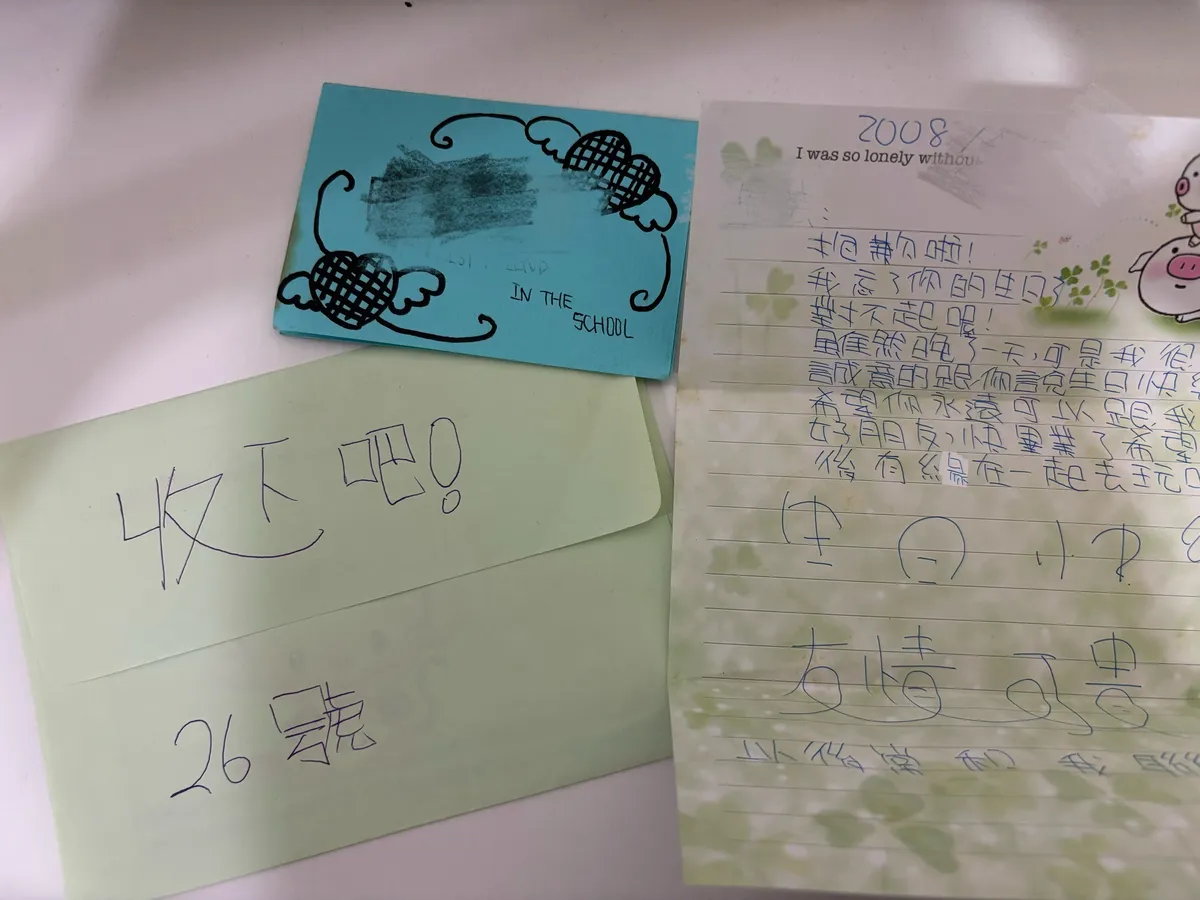 IN THE
SCHOOL
收下吧!
26 號
2008
I was so lonely withou
抱歉啦!
我忘了你的生日了
對不起喔!
雖然晚了一天,可是我很
誠意的跟你說生日快
希望你永遠可以跟我
好朋友,快畢業了希望
後有 在一起去玩
友情可貴
以後 我